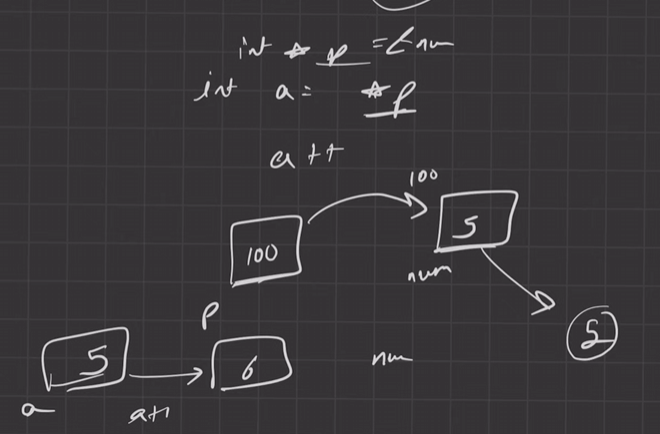 int * p = &num
int a = *p
a++
100
5
100
num
p
5
5
6
num
a
a++